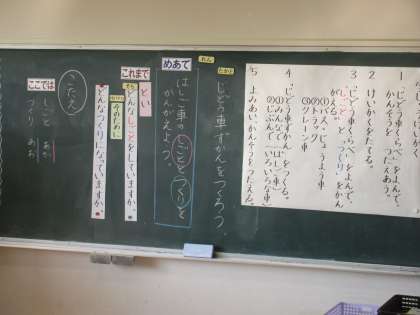 1 「じどう車くらべ」をよんで、
かんそうを つたえあう。
2 けいかくをたてる。
3 「じどう車くらべ」をよんで、
「しごと」と「つくり」をかん
がえる。
①バス・じょうよう車
②トラック
③クレーン車
4 「じどう車ずかん」をつくる。
①みんなで(はしご車)
②じぶんで(いろいろな車)
5 よみあい、かんそうをつたえる。
じどう車ずかんをつくろう。
めあて
はしご車の しごと と つくり を
かんがえよう。
これまで
とい
どんなしごとをしていますか。
そのために
どんなつくりになっていますか。
こたえ
ここでは
しごと
つくり